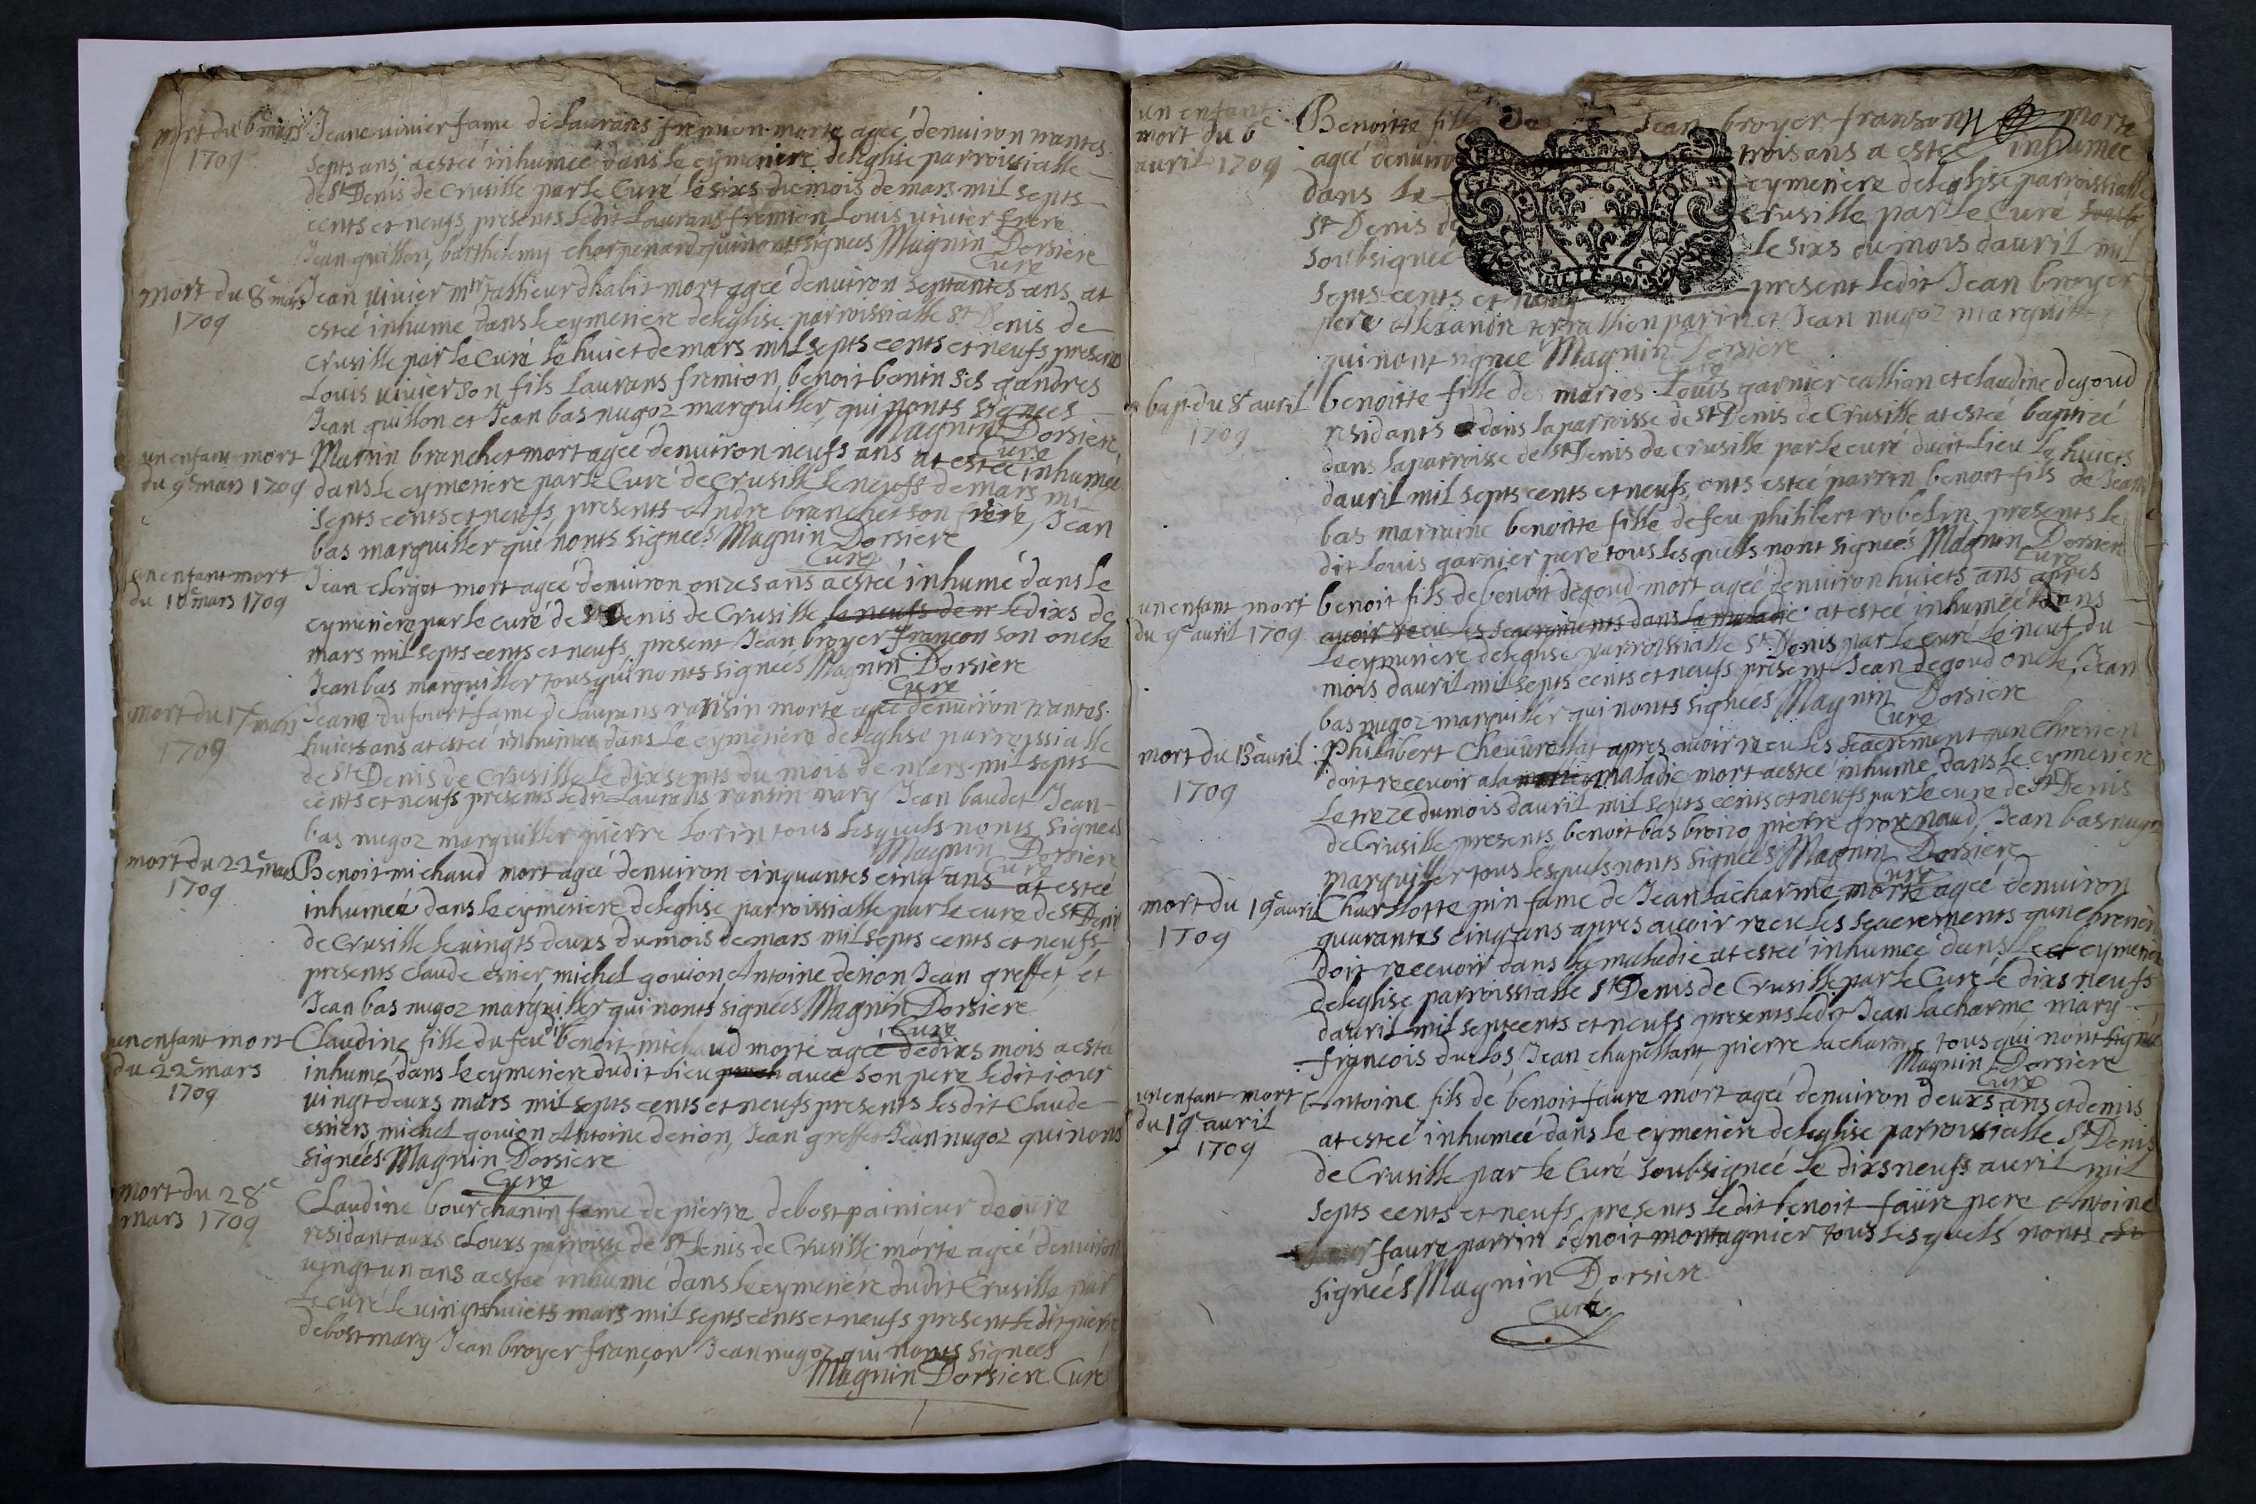 mort du 6e mars
1709
Jeane vivier fame de Laurans fremion morte ageé denuiron trantes
septs ans a esteé inhumeé dans le cymeniere deleglise parroissialle
de St Denis de Crusille par le Curé le sixs du mois de mars mil septs
cents et neufs presents ledit Laurans fremion Louis vivier frere
Jean quillon, barthelemy charpenard qui nonts signees Magnin Dorsiere
Cure
mort du 8e mars
1709
Jean vivier mtr tallieur dhabit mort ageé denuiron septantes ans at
esteé inhumé dans le cymeniere deleglise parroissialle St Denis de
Crusille par le Curé le huict de mars mil septs cents et neufs presents
Louis vivier son fils Laurans fremion, benoit bonin ses gandres
Jean quillon et Jean bas nugoz marguiller qui nonts signees
Magnin Dorsiere
Cure
un enfant mort
du 9e mars 1709
Martin branchet mort ageé denuiron neufs ans at esteé inhumée
dans le cymeniere par le Curé de Crusille le neufs de mars mil
septs cents et neufs, presents Andre branchet son frere, Jean
bas marguiller qui nonts signées Magnin Dorsiere
Cure
un enfant mort
du 10e mars 1709
Jean clergot mort ageé denuiron onzes ans a esteé inhumé dans le
cymeniere par le curé de St Denis de Crusille le neufs de m le dixs de
mars mil septs cents et neufs, present Jean broyer françon son oncle
Jean bas marguiller tous qui nonts signees Magnin Dorsiere
Cure
mort du 17e mars
1709
Jeane dufourt fame de Laurans ransin morte ageé denuiron trantes
huicts ans at esteé inhumeé dans le cymeniere deleglise parroissialle
de St Denis de Crusille le dixsepts du mois de mars mil septs
cents et neufs presents ledit Laurans ransin mary Jean baudet Jean
bas nugoz marguiller pierre lorin tous lesquels nonts signees
Magnin Dorsiere
Cure
mort du 22e mars
1709
Benoit michaud mort ageé denuiron cinquantes cinq ans at esteé
inhumeé dans le cymeniere deleglise parroissialle par le cure de St Denis
de Crusille le vingts deuxs du mois de mars mil septs cents et neufs
presents claude esnier michel gouion Antoine denion Jean greffet et
Jean bas nugoz marguiller qui nonts signées Magnin Dorsiere
Cure
un enfant mort
du 22e mars
1709
Claudine fille du feu dit benoit michaud morte ageé de dixs mois a esta
inhumé dans le cymeniere dudit lieu avec son pere ledit iour
vingt deuxs mars mil septs cents et neufs presents lesdit Claude
esniers michel gouion Antoine denion, Jean greffet Jean nugoz qui nonts
signées Magnin Dorsiere
Cure
mort du 28e
mars 1709
Claudine bourchanin fame de pierre debost painieur deouire
residant auxs Clours parroisse de St Denis de Crusille morte ageé denuiron
vingt un ans a esteé inhumé dans le cymeniere dudit Crusille par
le curé le vingtshuicts mars mil septs cents et neufs present ledit pierre
debost mary Jean broyer françon Jean nugoz qui nonts signees
Magnin Dorsiere Curé
un enfant
mort du 6e
avril 1709
Benoitte fille de Jean broyer franson morte
ageé denuiron trois ans a esteé inhumée
dans le cymeniere deleglise parroissialle
St Denis de Crusille par le Curé
soubsignee le sixs du mois dauril mil
septs cents et neufs present ledit Jean broyer
pere Alexandre terrallion parin et Jean nugoz marguill
qui nont signee Magnin Dorsiere
bapt du 8e auril
1709
benoitte fille des maries Louis garnier callian et claudine degoud
residants dans la parroisse de St Denis de Crusille at esteé baptizé
dans la parroisse de St Denis de Crusille par le cure dudit lieu le huicts
dauril mil septs cents et neufs, onts esteé parrin benoit fils de Jean
bas marraine benoitte fille defeu philibert robelin presents le
dit Louis garnier pere tous lesquells nont signees Magnin Dorsiere
Cure
un enfant mort
du 9e auril 1709
benoit fils de benoit degoud mort ageé denuiron huicts ans apres
avoir receu les seacrements dans la maladie at esteé inhumeé dans
le cymeniere deleglise parroissialle St Denis par le curé le neuf du
mois dauril mil septs cents et neufs present Jean degoud oncle, Jean
bas nugoz marguiller qui nonts signees Magnin Dorsiere
Cure
mort du 13e auril
1709
Philibert Cheuurellat apres avoir receu les seacrement qun Chretien
doit recevoir a la maladie mort a esteé inhumé dans le cymeniere
le treze du mois dauril mil septs cents et neufs par le cure de St Denis
de Crusille presents benoit bas broizo pierre grosnaud, Jean bas nugoz
marguiller tous lesquels nonts signees Magnin Dorsiere
Cure
mort du 19e auril
1709
Charlotte pin fame de Jean lacharme morte ageé denuiron
quarantes cinq ans apres auoir receu les seacrements qun chretien
doit recevoir dans la maladie at esteé inhumeé dans le cymeniere
deleglise parroissialle St Denis de Crusille par le Curé le dixs neufs
dauril mil septcents et neufs presents ledit Jean lacharme mary
françois duclos, Jean chapellant pierre lacharme tous qui nont signé
Magnin Dorsiere
Cure
un enfant mort
du 19e auril
1709
Antoine fils de benoit faure mort ageé denuiron deuxs ans et demis
at esteé inhumeé dans le cymeniere deleglise parroissialle St Denis
de Crusille par le Curé soubsigneé le dixsneufs auril mil
septs cents et neufs presents ledit benoit faüre pere Antoine
faure parrin benoit montagnier tous lesquells nonts
signées Magnin Dorsiere
Cure